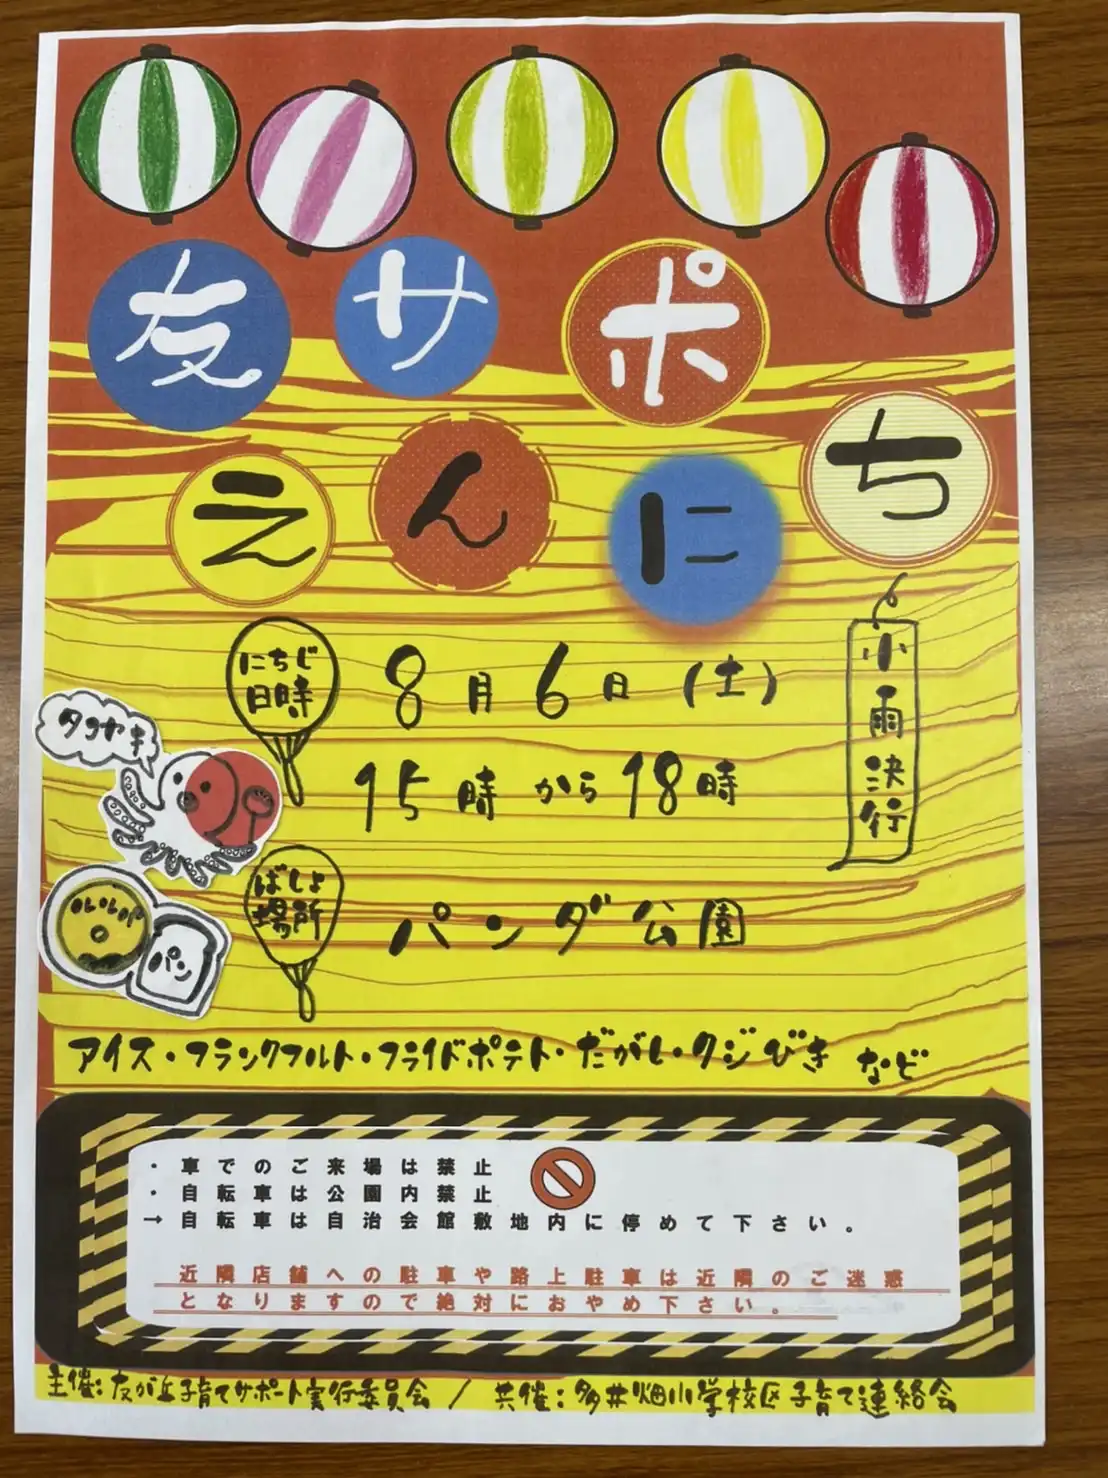 友サポ
えんにち
にちじ
日時
8月6日(土)
15時から18時
小雨決行
タコヤキ
ばしょ
場所
パンダ公園
パン
アイス・フランクフルト・フライドポテト・だがし・クジびき など
・車でのご来場は禁止
・自転車は公園内禁止
→自転車は自治会館敷地内に停めて下さい。
近隣店舗への駐車や路上駐車は近隣のご迷惑
となりますので絶対におやめ下さい。
主催:友が丘子育てサポート実行委員会 / 共催:多井畑小学校区子育て連絡会